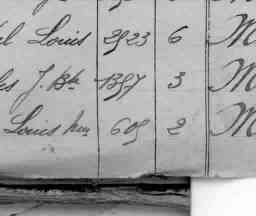 el Louis 2923 6 M
es J. Bte 1397 3 M
Louis 605 2 M